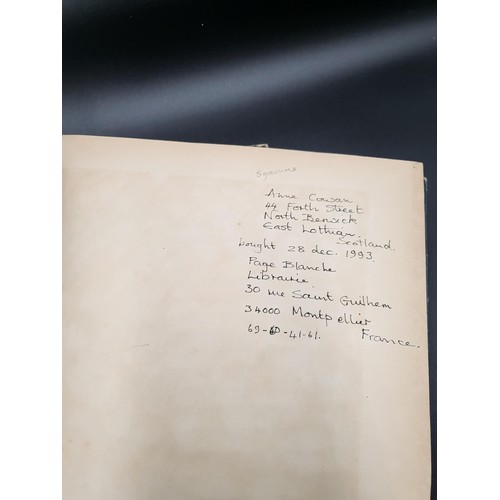 Anne Cowan
44 Forth Street
North Berwick
East Lothian.
Scotland.
bought 28 dec. 1993.
Page Blanche
Librairie.
30 rue Saint Guilhem
34000 Montpellier
France.
69-60-41-61.